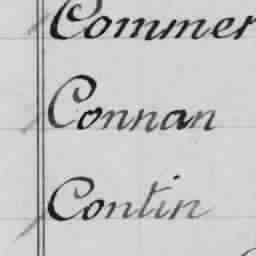 Commer
Connan
Contin